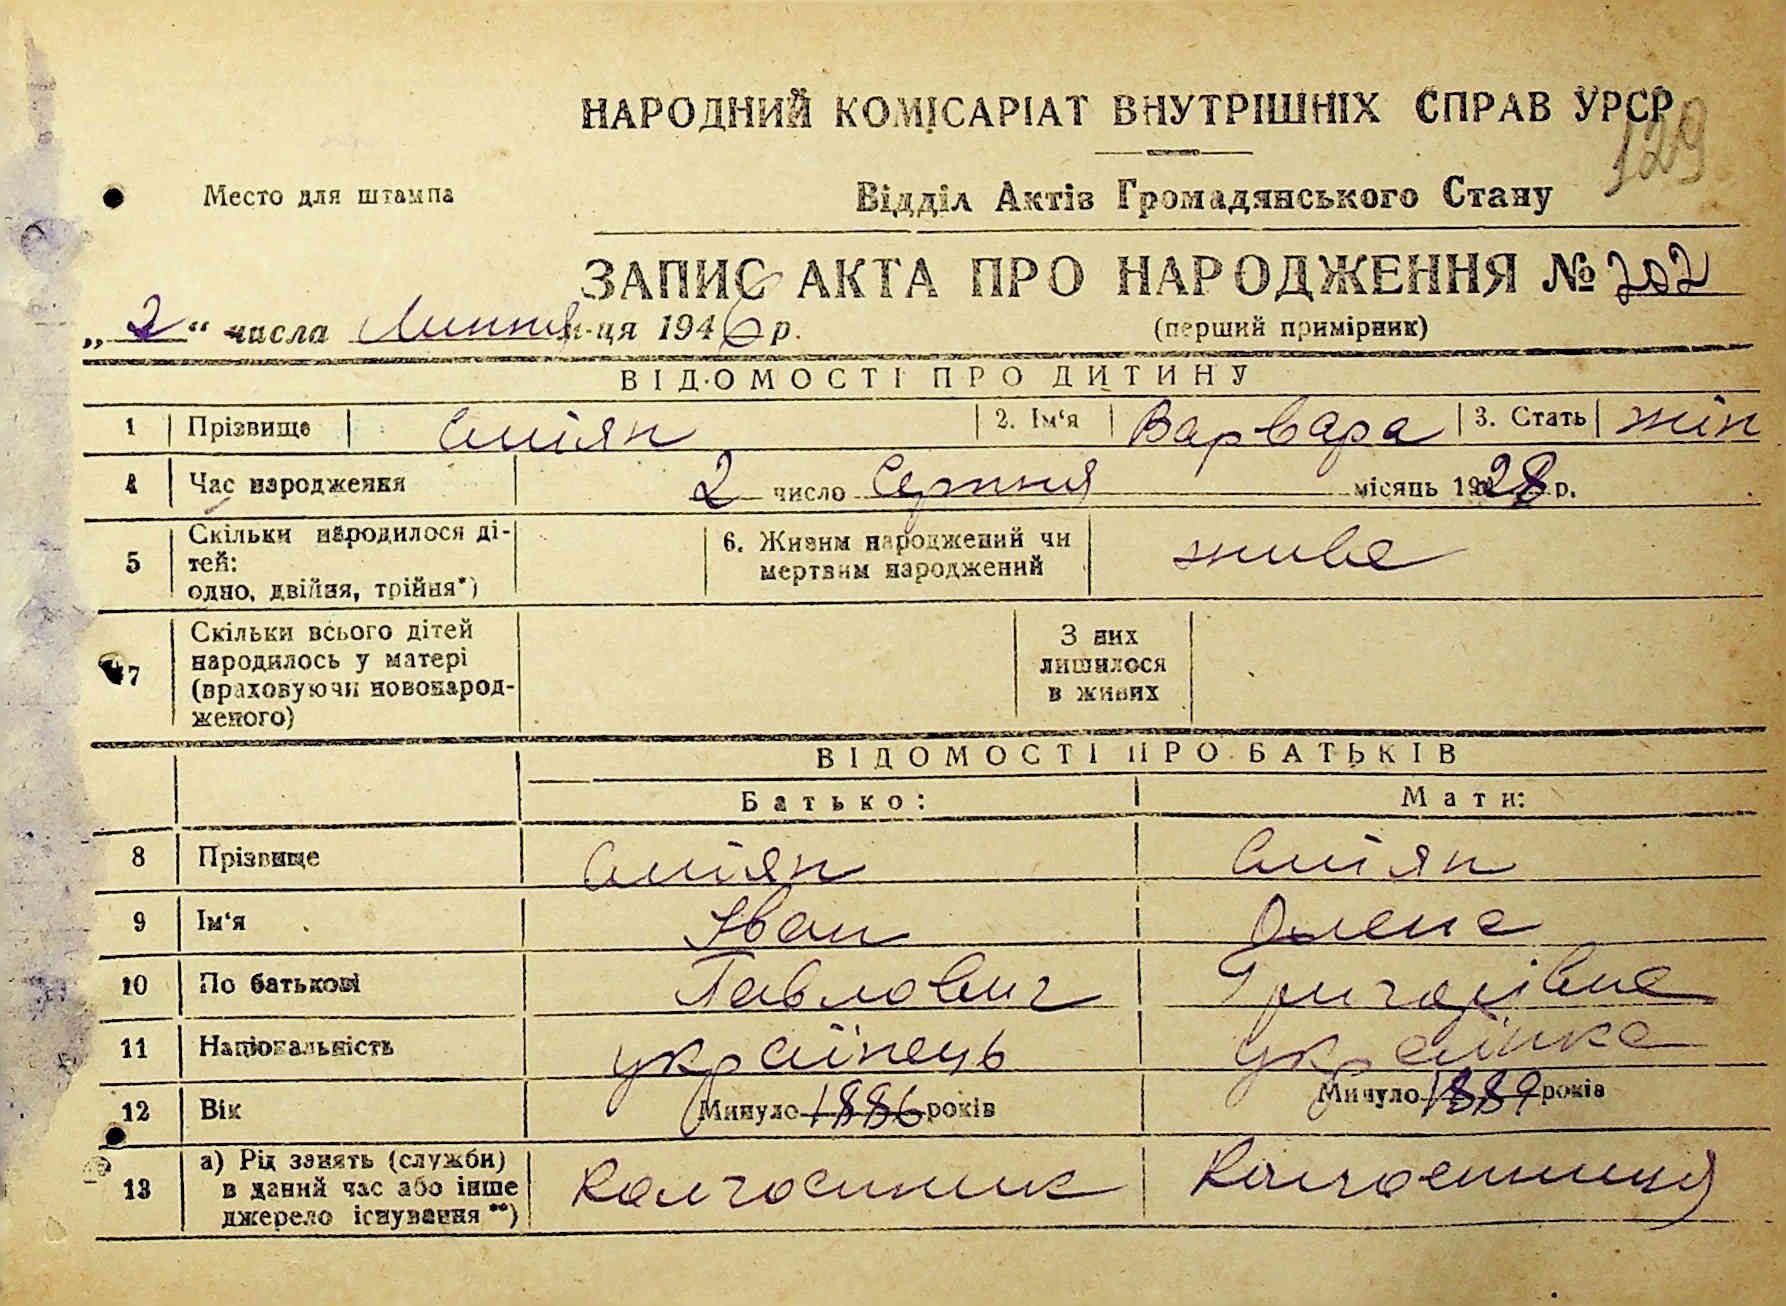 НАРОДНИЙ КОМІСАРІАТ ВНУТРІШНІХ СПРАВ УРСР
129
Место для штампа
Відділ Актів Громадянського Стану
ЗАПИС АКТА ПРО НАРОДЖЕННЯ № 202
„2“ числа Липня м-ця 1946 р. (перший примірник)
ВІДОМОСТІ ПРО ДИТИНУ
1 Прізвище Сміян 2. Ім‘я Варвара 3. Стать жін
4 Час народження 2 число Серпня місяць 1928 р.
5 Скільки народилося дітей: одно, двійня, трійня*) 6. Живим народжений чи мертвим народжений живе
7 Скільки всього дітей народилось у матері (враховуючи новонародженого) З них лишилося в живих
ВІДОМОСТІ ПРО БАТЬКІВ
Батько: Мати:
8 Прізвище Сміян Сміян
9 Ім‘я Іван Олена
10 По батькові Павлович Григорівна
11 Національність українець українка
12 Вік Минуло 1886 років Минуло 1889 років
13 а) Рід занять (служби) в даний час або інше джерело існування**) Колгоспник Колгоспниця